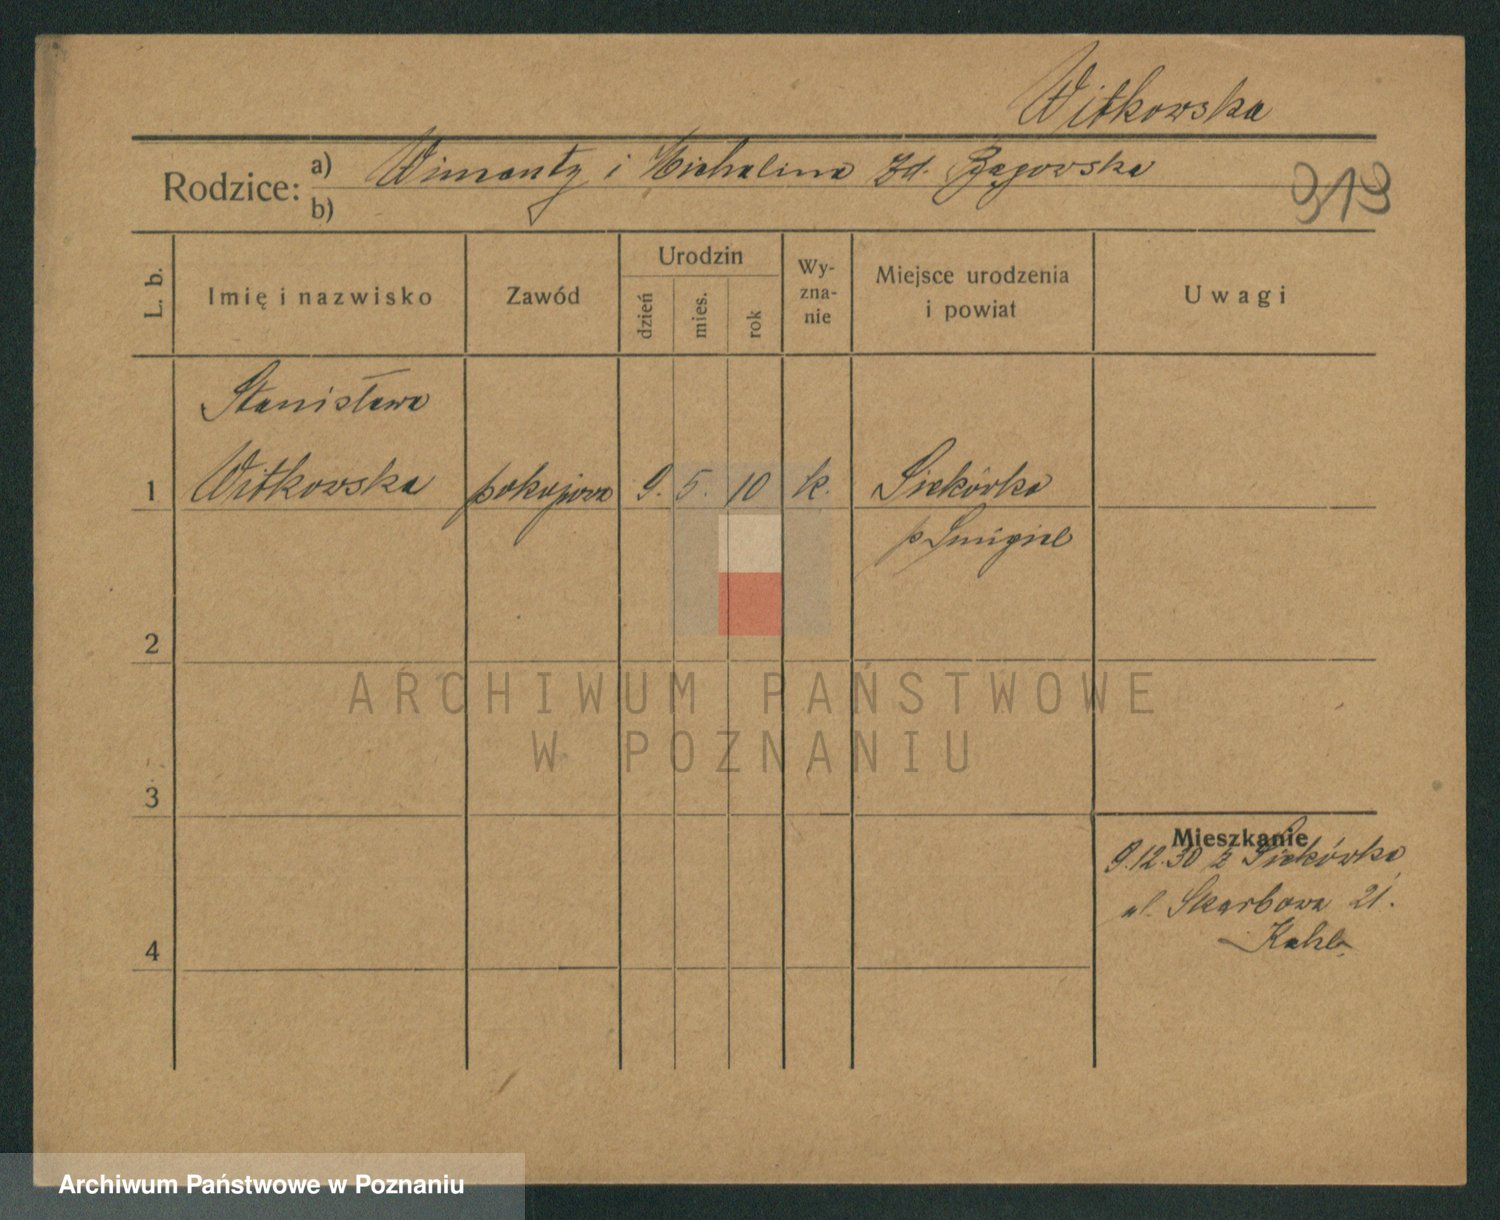 Witkowska
Rodzice: a) i Michalina zd.
b)
313
L. b. Imię i nazwisko Zawód Urodzin dzień mies. rok Wy-zna-nie Miejsce urodzenia i powiat Uwagi
Stanisława
1 Witkowska pokojowa 9. 5. 10 k. Siekórka
p Śmigiel
2
ARCHIWUM PAŃSTWOWE
W POZNANIU
3
Mieszkanie
9.12.30 z Siekórka
ul. Skarbowa 21.
4
Archiwum Państwowe w Poznaniu